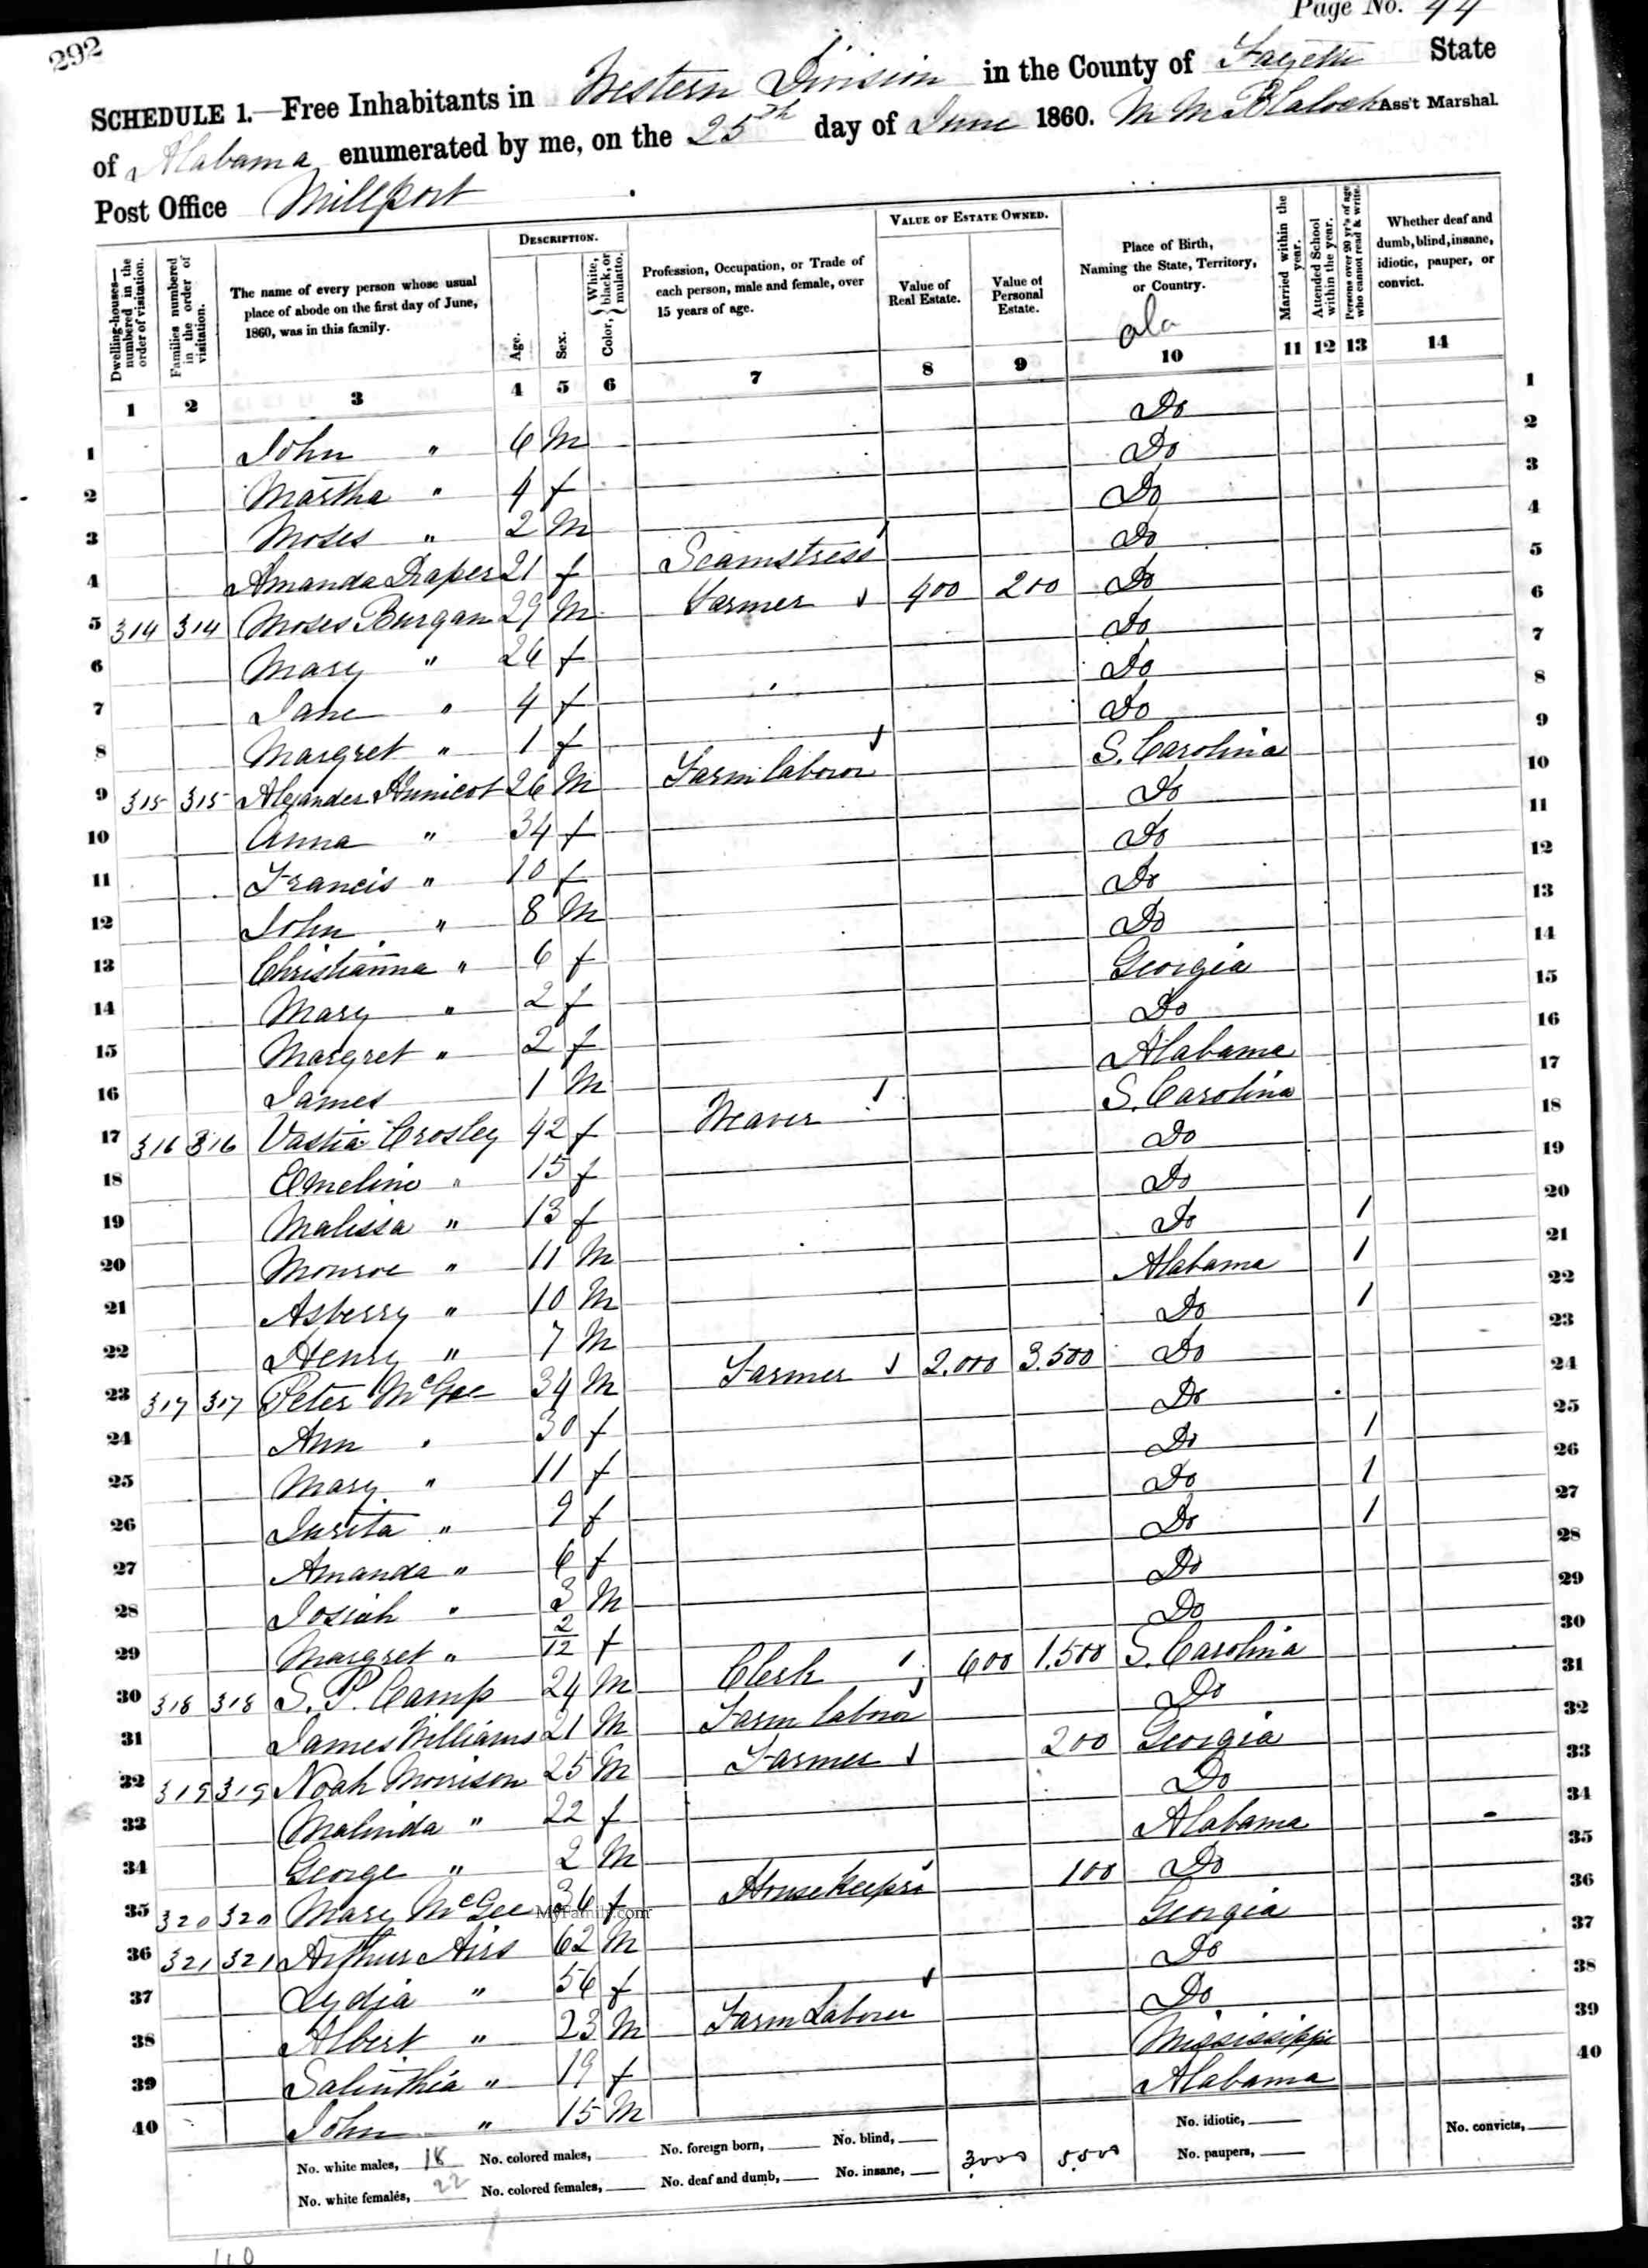 292
Page No. 44
SCHEDULE 1.—Free Inhabitants in Western Division in the County of Fayette State
of Alabama enumerated by me, on the 25th day of June 1860. M M Blalock Ass't Marshal.
Post Office Millport
Dwelling-houses—numbered in the order of visitation.
Families numbered in the order of visitation.
The name of every person whose usual place of abode on the first day of June, 1860, was in this family.
DESCRIPTION.
Age.
Sex.
Color, { White, black, or mulatto.
Profession, Occupation, or Trade of each person, male and female, over 15 years of age.
VALUE OF ESTATE OWNED.
Value of Real Estate.
Value of Personal Estate.
Place of Birth, Naming the State, Territory, or Country.
Ala
Married within the year.
Attended School within the year.
Persons over 20 yr's of age who cannot read & write.
Whether deaf and dumb, blind, insane, idiotic, pauper, or convict.
1 2 3 4 5 6 7 8 9 10 11 12 13 14
1 John " 6 M Do 1
2 Martha " 4 f Do 2
3 Moses " 2 M Do 3
4 Amanda Draper 21 f Seamstress Do 4
5 314 314 Moses Burgan 29 M Farmer 400 200 Do 5
6 Mary " 26 f Do 6
7 Jane " 4 f Do 7
8 Margret " 1 f Do 8
9 315 315 Alexander Hunicot 26 M Farm laborer S. Carolina 9
10 Anna " 34 f Do 10
11 Francis " 10 f Do 11
12 John " 8 M Do 12
13 Christianna " 6 f Do 13
14 Mary " 2 f Georgia 14
15 Margret " 2 f Do 15
16 James 1 M Alabama 16
17 316 316 Vastia Crosley 42 f Weaver S. Carolina 17
18 Emeline " 15 f Do 18
19 Malissa " 13 f Do 19
20 Monroe " 11 M Do 1 20
21 Asberry " 10 M Alabama 1 21
22 Henry " 7 M Do 1 22
23 317 317 Peter McGee 34 M Farmer 2.000 3.500 Do 23
24 Ann " 30 f Do 24
25 Mary " 11 f Do 1 25
26 Jurita " 9 f Do 1 26
27 Amanda " 6 f Do 1 27
28 Josiah " 3 M Do 28
29 Margret " 2/12 f Do 29
30 318 318 S. P. Camp 24 M Clerk 600 1.500 S. Carolina 30
31 James Williams 21 M Farm labor Do 31
32 319 319 Noah Morrison 25 M Farmer 200 Georgia 32
33 Malinda " 22 f Do 33
34 George " 2 M Alabama 34
35 320 320 Mary McGee 36 f Housekeeper 100 Do 35
MyFamily.com
36 321 321 Arthur Airs 62 M Georgia 36
37 Lydia " 56 f Do 37
38 Albert " 23 M Farm Laborer Do 38
39 Salinthia " 19 f Mississippi 39
40 John " 15 M Alabama 40
No. white males, 18 No. colored males, No. foreign born, No. blind, 3000 5500 No. idiotic, No. convicts,
No. white females, 22 No. colored females, No. deaf and dumb, No. insane, No. paupers,